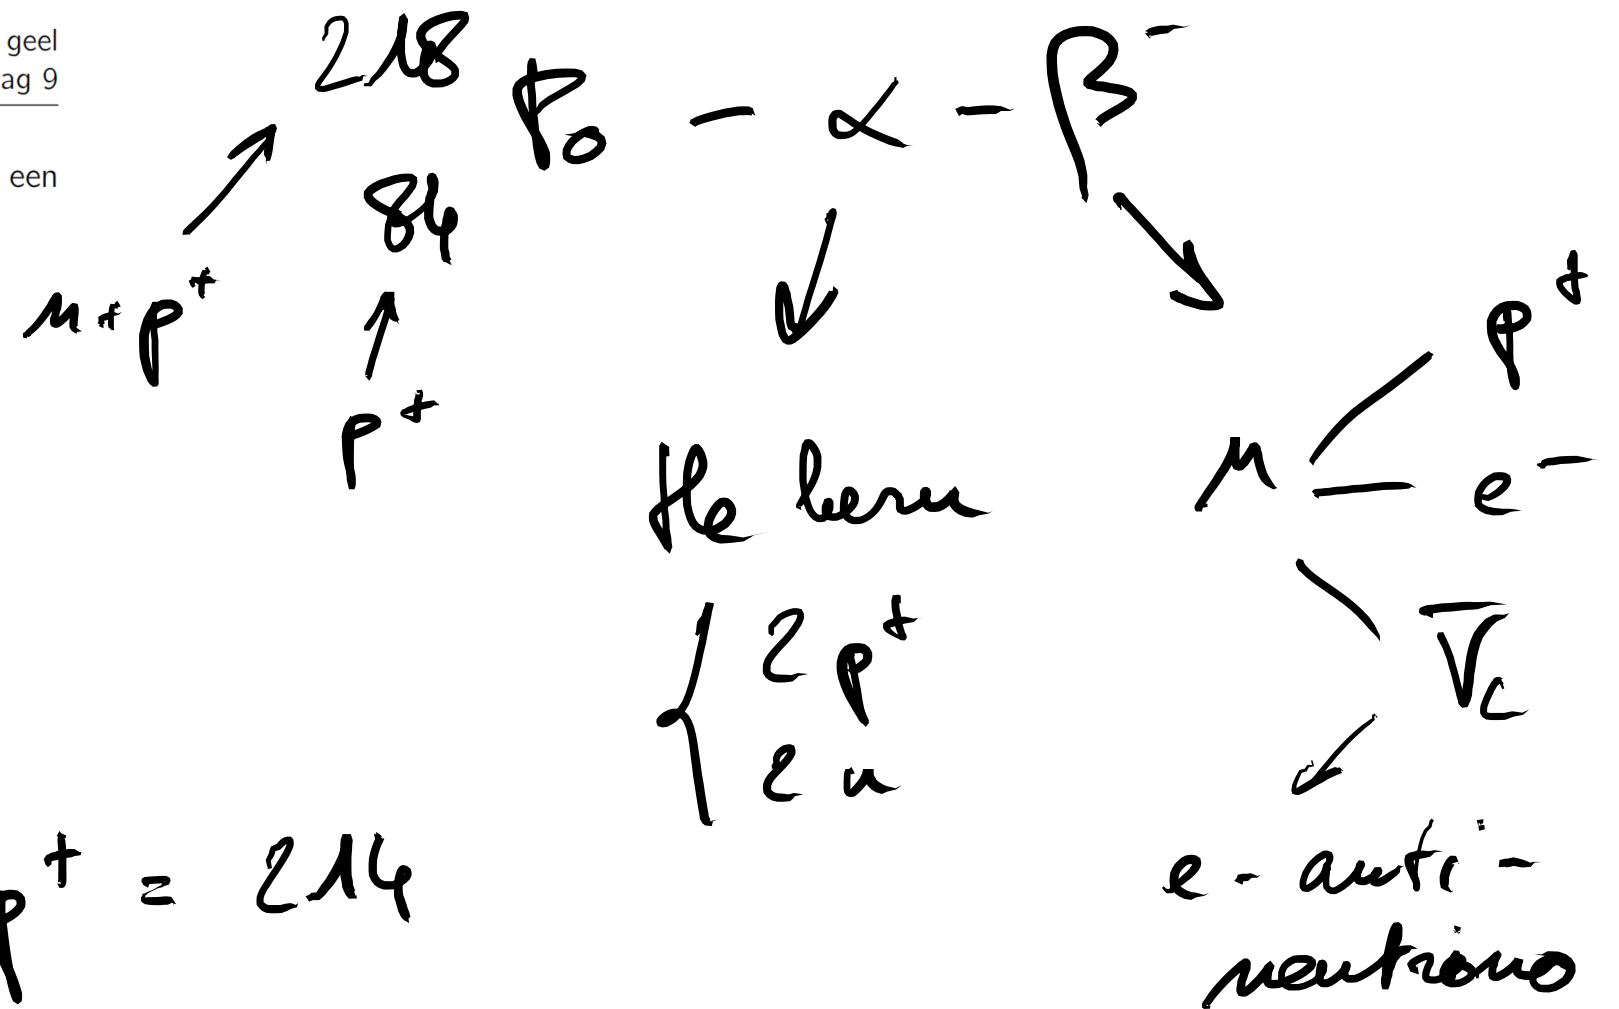 geel
ag 9
een
218
84
Po - α - β⁻
n + p⁺
p⁺
He kern
2 p⁺
2 n
n
p⁺
e⁻
ν̄e
e - anti -
neutrino
p⁺ = 214